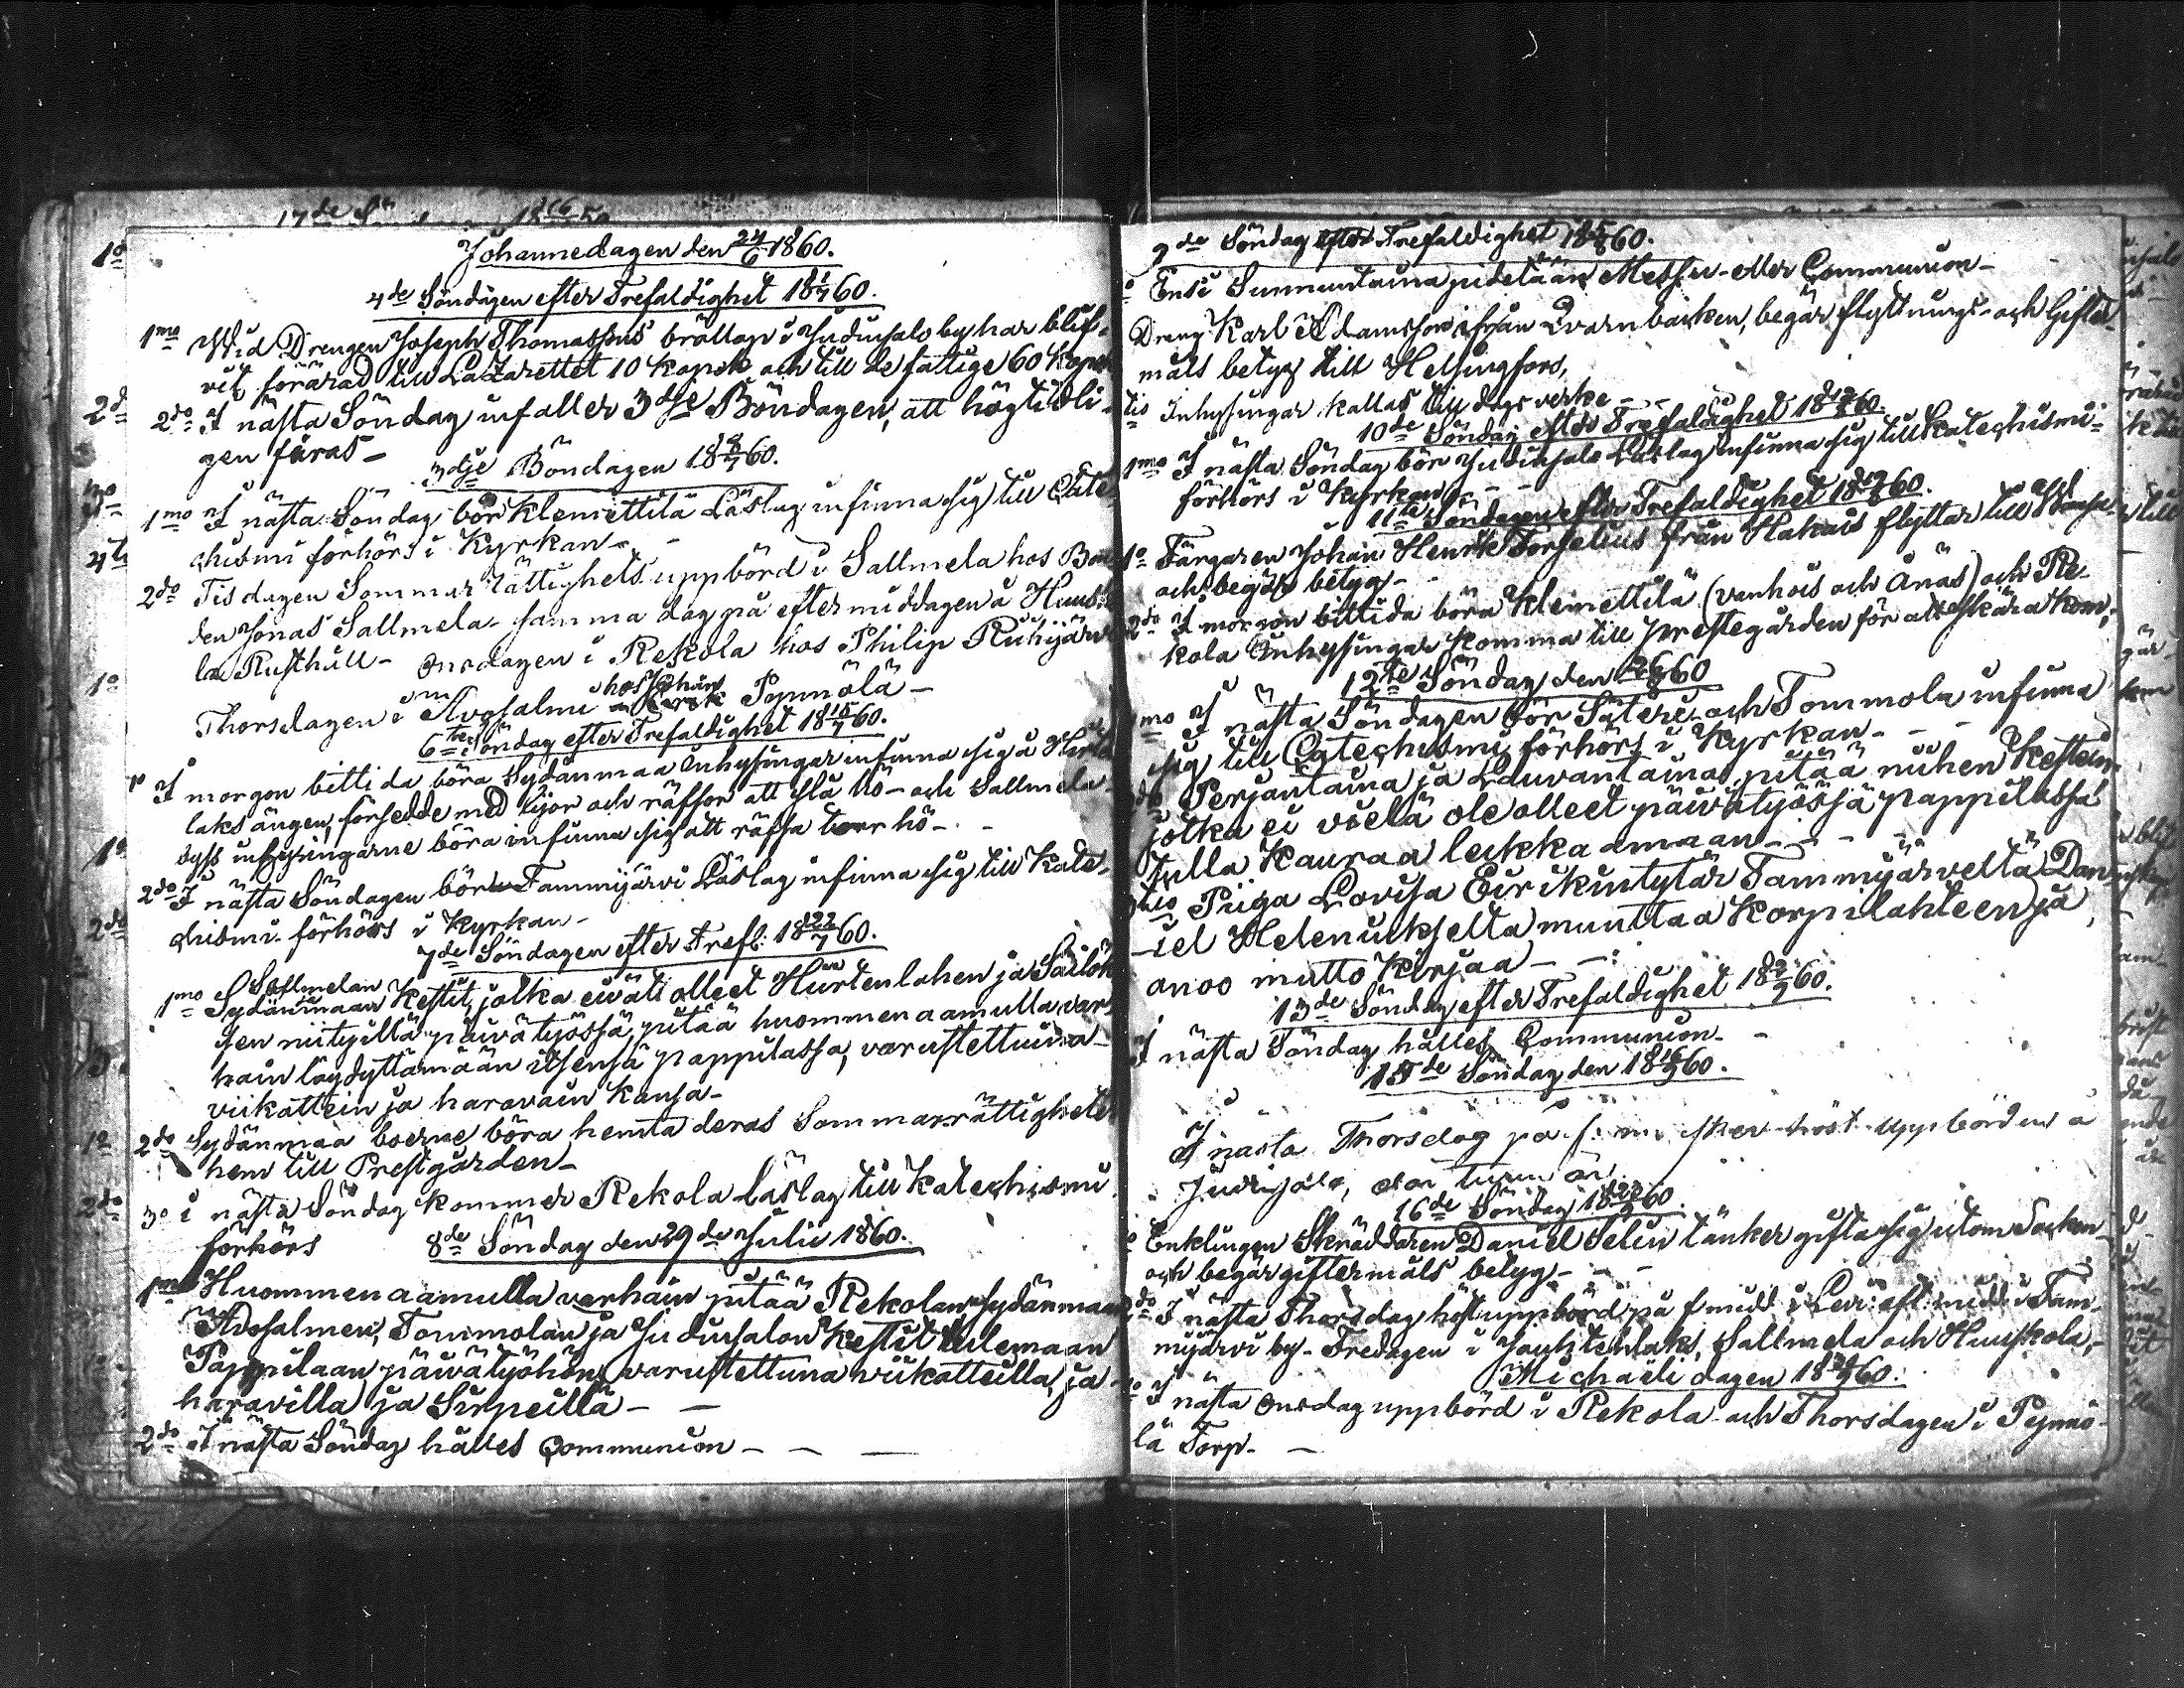 Johannedagen den 24/6 1860.
4de Söndagen efter Trefaldighet 18 1/7 60.
1mo Wid Drengen Joseph Thomassons bröllop i Judinsalo by har blif-
vit förärad till Lazarettet 10 kopek och till de fattige 60 Kopek
2do I nästa Söndag infaller 3dje Böndagen, att högtidli-
gen firas-
3dje Böndagen 18 8/7 60.
1mo I nästa Söndag bör Klemettilä Läslag infinna sig till Cate-
chismi förhörs i Kyrkan-
2do Tisdagen Sommar rättighets uppbörd i Sallmela hos Bon-
den Jonas Sallmela- samma dag på eftermiddagen å Huus
la Rusthåll- Onsdagen i Rekola hos Philip Riihijärvi
Thorsdagen i hos Johan Pynnölä-
6te Söndag efter Trefaldighet 18 15/7 60.
1o I morgon bittida böra Sydänmaa Inhysingar infinna sig å
laks ängen, försedde med lijor och räfsor att slå hö- och Sallmela
inhysingarne böra infinna sig att räfsa torr hö-
2do I nästa Söndagen bör Tammijärvi Läslag infinna sig till Kate-
chismi förhörs i Kyrkan-
7de Söndagen efter Tref: 18 22/7 60.
Sallmelan
1mo Sydänmaan Kestit, jotka eiwät olleet Hiirtenlahen ja
sen niityillä päivätyössä, pitää huommen aamulla var-
hain löydyttämään itsensä pappilassa, varustettuina
viikattein ja haravain kansa-
2do Sydänmaa boerne böra hemta deras Sommarrättigheter
hem till Prestgården-
3o i nästa Söndag kommer Rekola Läslag till Katechismi
förhörs
8de Söndag den 29de Julii 1860.
1mo Huommen aamulla varhain pitää Rekolan, Sydänmaan
Tommolan ja Judinsalon Kestit tulemaan
Pappilaan päiwätyöhön, varustettuna wiikatteilla, ja
haravilla ja Sirpeillä-
2do I nästa Söndag hålles Communion-
9de Söndag efter Trefaldighet 18 5/8 60.
Ensi Sunnuntaina pidetään Messu- eller Communion-
Dreng Karl Adamsson ifrån Qvarnbacken, begär flyttnings- och Gifter-
måls betyg till Helsingfors,
tio Inhysingar kallas till dagsverke
10de Söndag efter Trefaldighet 18 12/8 60.
1mo I nästa Söndag bör Judinsalo Läslag infinna sig till Katechismi-
förhörs i Kyrkan-
11te Söndagen efter Trefaldighet 18 19/8 60.
1o Färgaren Johan Henrik Forselius från Hakais flyttar till
och begär betyg-
2do I morgon bittida böra Klemettilä (vanhois och Änäs) och Re-
kola Inhysingar Komma till prestegården för att skära korn,
12te Söndag den 26/8 60
1mo I nästa Söndagen bör Säteri och Tommola infinna
sig till Catechismi förhörs i Kyrkan-
2do Perjantaina ja Lauvantaina pitää niihen Kestein,
jotka ei vielä ole olleet päiwätyössä pappilassa
tulla kauraa leikkaamaan-
3tio Piiga Lovisa Eirikintytär Tammijärveltä Dan-
iel Heleniukselta muuttaa Korpilahteen ja
anoo muttokirjaa-
13de Söndag efter Trefaldighet 18 2/9 60.
I nästa Söndag hålles Communion-
15de Söndag den 18 16/9 60.
I nästa Thorsdag på sker höst uppbörden å
Judinsalo,
16de Söndag 18 23/9 60.
Enklingen Skräddaren Daniel Selin tänker gifta sig utom Socken
och begär giftermåls betyg-
2do I nästa Thorsdag höstuppbörd på f midd i eft midd i Tam-
mijärvi by- Fredagen i Sallmela och Huiskola,-
Michaëli dagen 18 60.
I nästa Onsdag uppbörd i Rekola och Thorsdagen i Pynnö-
lä Torp-